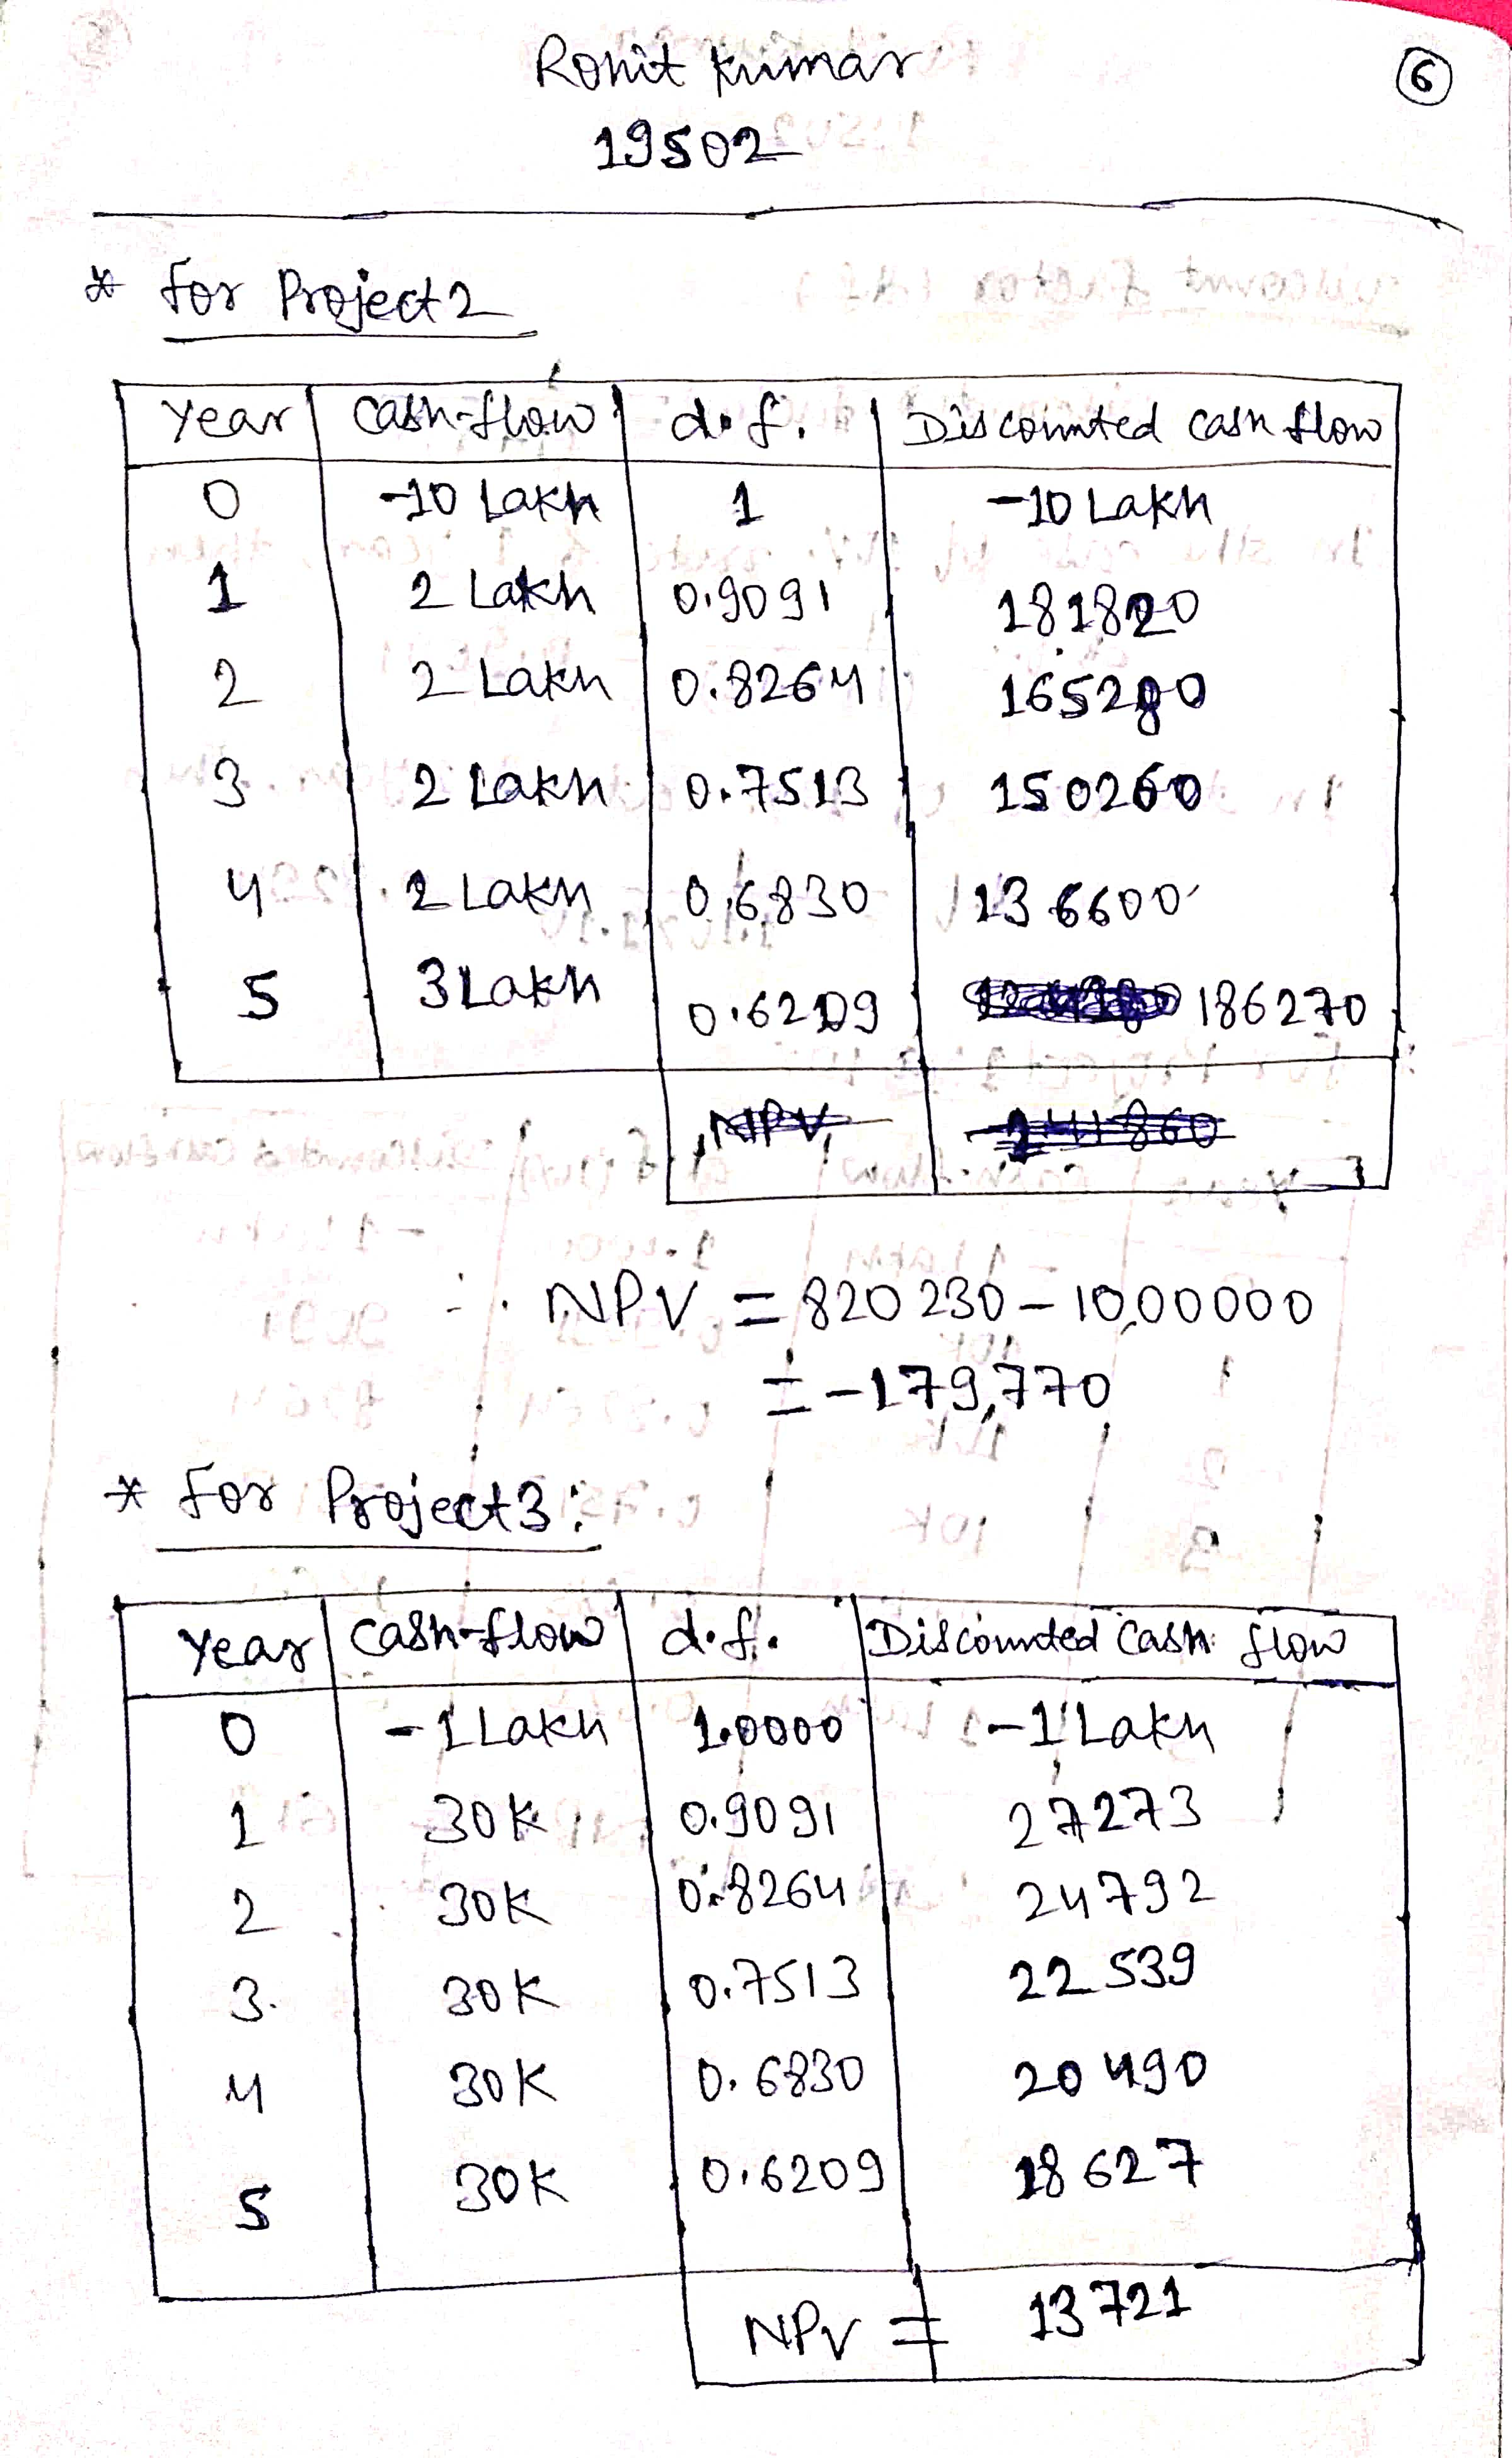 Rohit Kumar
6
19502
* For Project 2
Year | Cash-flow | d.f. | Discounted cash flow
0 | -10 Lakh | 1 | -10 Lakh
1 | 2 Lakh | 0.9091 | 181820
2 | 2 Lakh | 0.8264 | 165280
3 | 2 Lakh | 0.7513 | 150260
4 | 2 Lakh | 0.6830 | 136600
5 | 3 Lakh | 0.6209 | 186270
NPV
∴ NPV = 820230 - 10,00000
= -179,770
* For Project 3:
Year | Cash-flow | d.f. | Discounted Cash flow
0 | -1 Lakh | 1.0000 | -1 Lakh
1 | 30K | 0.9091 | 27273
2 | 30K | 0.8264 | 24792
3. | 30K | 0.7513 | 22539
4 | 30K | 0.6830 | 20490
5 | 30K | 0.6209 | 18627
NPV = 13721